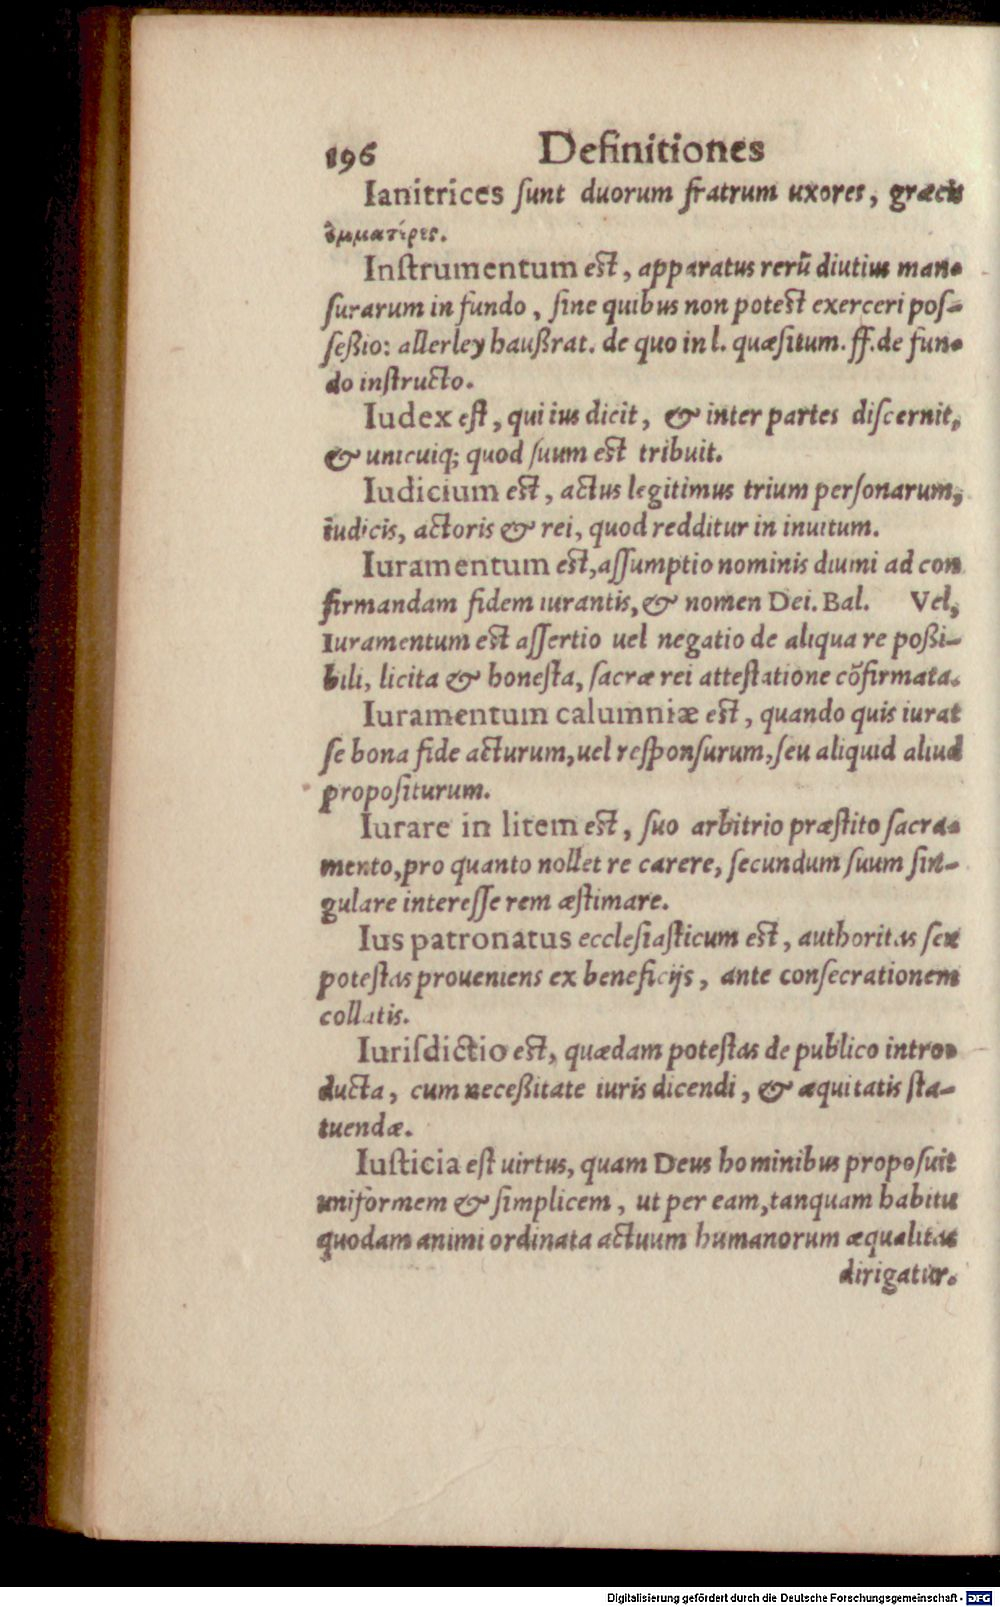 196 Definitiones
Ianitrices ſunt duorum fratrum uxores, græcis
Inſtrumentum eſt, apparatus rerũ diutius man-
ſurarum in fundo, ſine quibus non poteſt exerceri poſ-
ſeßio: allerley haußrat. de quo in l. quæſitum. ff. de fun-
do inſtructo.
Iudex eſt, qui ius dicit, & inter partes diſcernit,
& unicuiq; quod ſuum eſt tribuit.
Iudicium eſt, actus legitimus trium perſonarum,
iudicis, actoris & rei, quod redditur in inuitum.
Iuramentum eſt, aſſumptio nominis diuini ad con
firmandam fidem iurantis, & nomen Dei. Bal. Vel,
Iuramentum eſt aſſertio uel negatio de aliqua re poßi-
bili, licita & honeſta, ſacræ rei atteſtatione cõfirmata.
Iuramentum calumniæ eſt, quando quis iurat
ſe bona fide acturum, uel reſponſurum, ſeu aliquid aliud
propoſiturum.
Iurare in litem eſt, ſuo arbitrio præſtito ſacra-
mento, pro quanto nollet re carere, ſecundum ſuum ſin-
gulare intereſſe rem æſtimare.
Ius patronatus eccleſiaſticum eſt, authoritas ſeu
poteſtas proueniens ex beneficijs, ante conſecrationem
collatis.
Iuriſdictio eſt, quædam poteſtas de publico intro-
ducta, cum neceßitate iuris dicendi, & æquitatis ſta-
tuendæ.
Iuſticia eſt uirtus, quam Deus hominibus propoſuit
uniformem & ſimplicem, ut per eam, tanquam habitu
quodam animi ordinata actuum humanorum æqualitas
dirigatur.
Digitalisierung gefördert durch die Deutsche Forschungsgemeinschaft - DFG